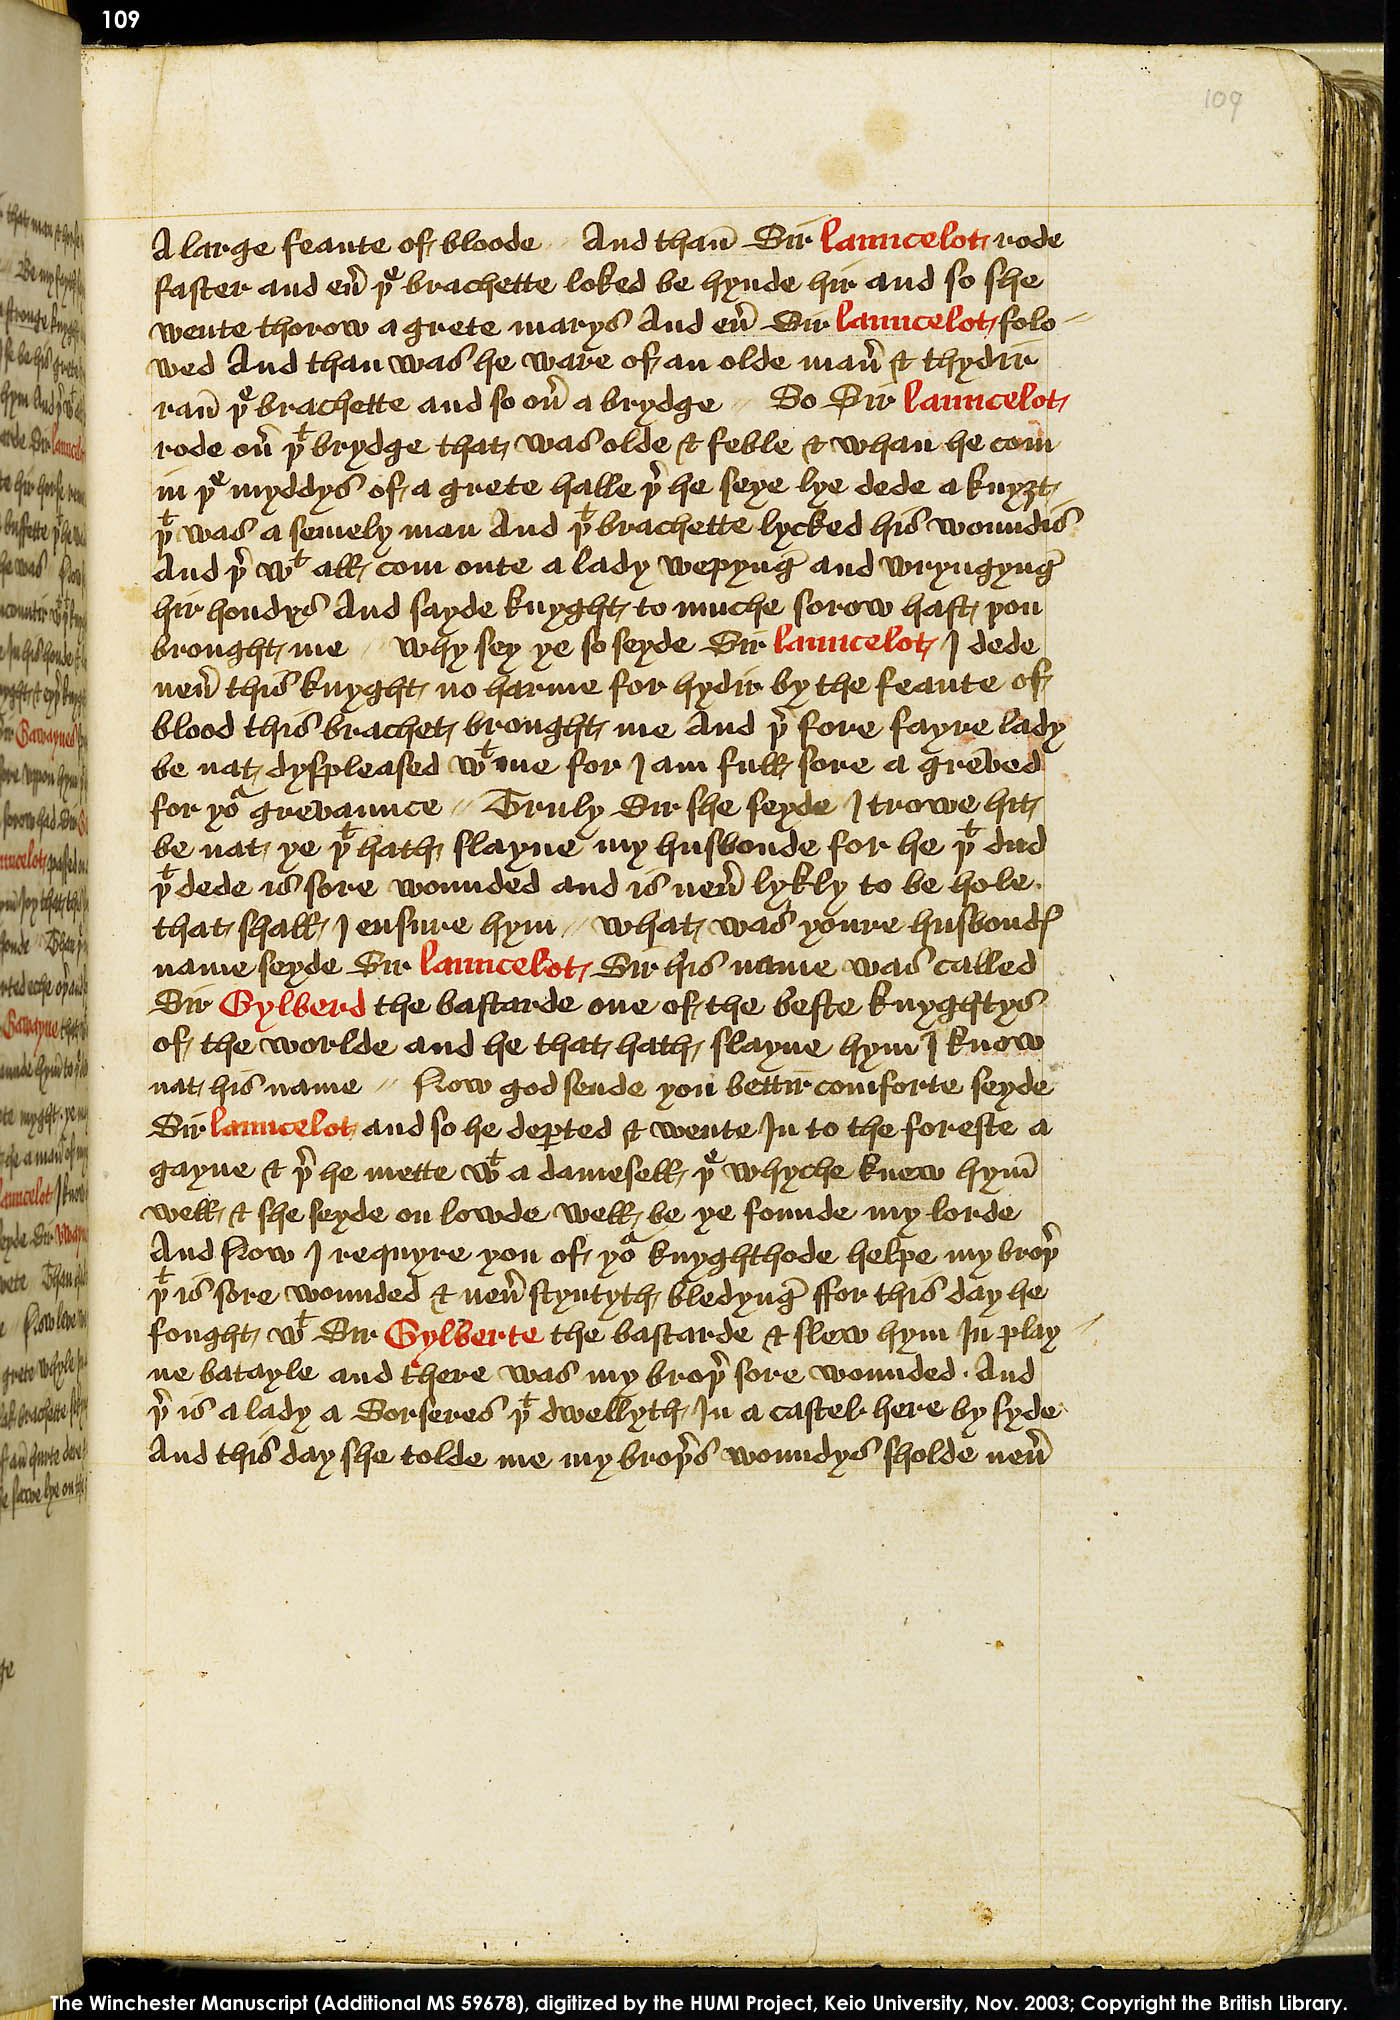 109
109
A large feaute of bloode // And than̄ Sir Launcelot rode
faster and eủ þe brachette loked be hynde hir and so she
wente thorow a grete marys And eủ Sir Launcelot folo-
wed And than was he ware of an olde man̉ & thydir
ran̄ þe brachette and so oủ a brydge // So Sir Launcelot
rode oủ þt brydge that was olde & feble & whan he com
in þe myddys of a grete halle þ̉ he seye lye dede a knyȝt
þt was a semely man And þt brachette lycked his woundis
And þ̉ wt all com oute a lady wepyng̉ and wryngyng̉
hir hondys And sayde knyght to muche sorow hast þou
brought me // why sey ye so seyde Sir Launcelot I dede
neủ this knyght no harme for hydir by the feaute of
blood this brachet brought me And þ̉ fore fayre lady
be nat dyspleased wt me for I am full sore a greved
for yor grevaunce // Truly Sir she seyde I trowe hit
be nat ye þt hath slayne my husbonde for he þt dud
þt dede is sore wounded and is neủ lykly to be hole.
that shall I ensure hym // what was youre husbondꝭ
name seyde Sir Launcelot Sir his name was called
Sir Gylberd the bastarde one of the beste knyghtys
of the worlde and he that hath slayne hym I know
nat his name // Now god sende you bettir comforte seyde
Sir Launcelot and so he deꝑted & wente In to the foreste a
gayne & þ̉ he mette wt a damesell þe whyche knew hym̄
well & she seyde on lowde well be ye founde my lorde
And Now I requyre you of yor knyghthode helpe my broþ̉
þt is sore wounded & neủ styntyth bledyng̉ ffor this day he
fought wt Sir Gylberte the bastarde & slew hym In play-
ne batayle and there was my broþ̉ sore wounded. And
þ̉ is a lady a Sorseres þt dwellyth In a castel here by syde
And this day she tolde me my broþ̉s woundys sholde neủ
The Winchester Manuscript (Additional MS 59678), digitized by the HUMI Project, Keio University, Nov. 2003; Copyright the British Library.